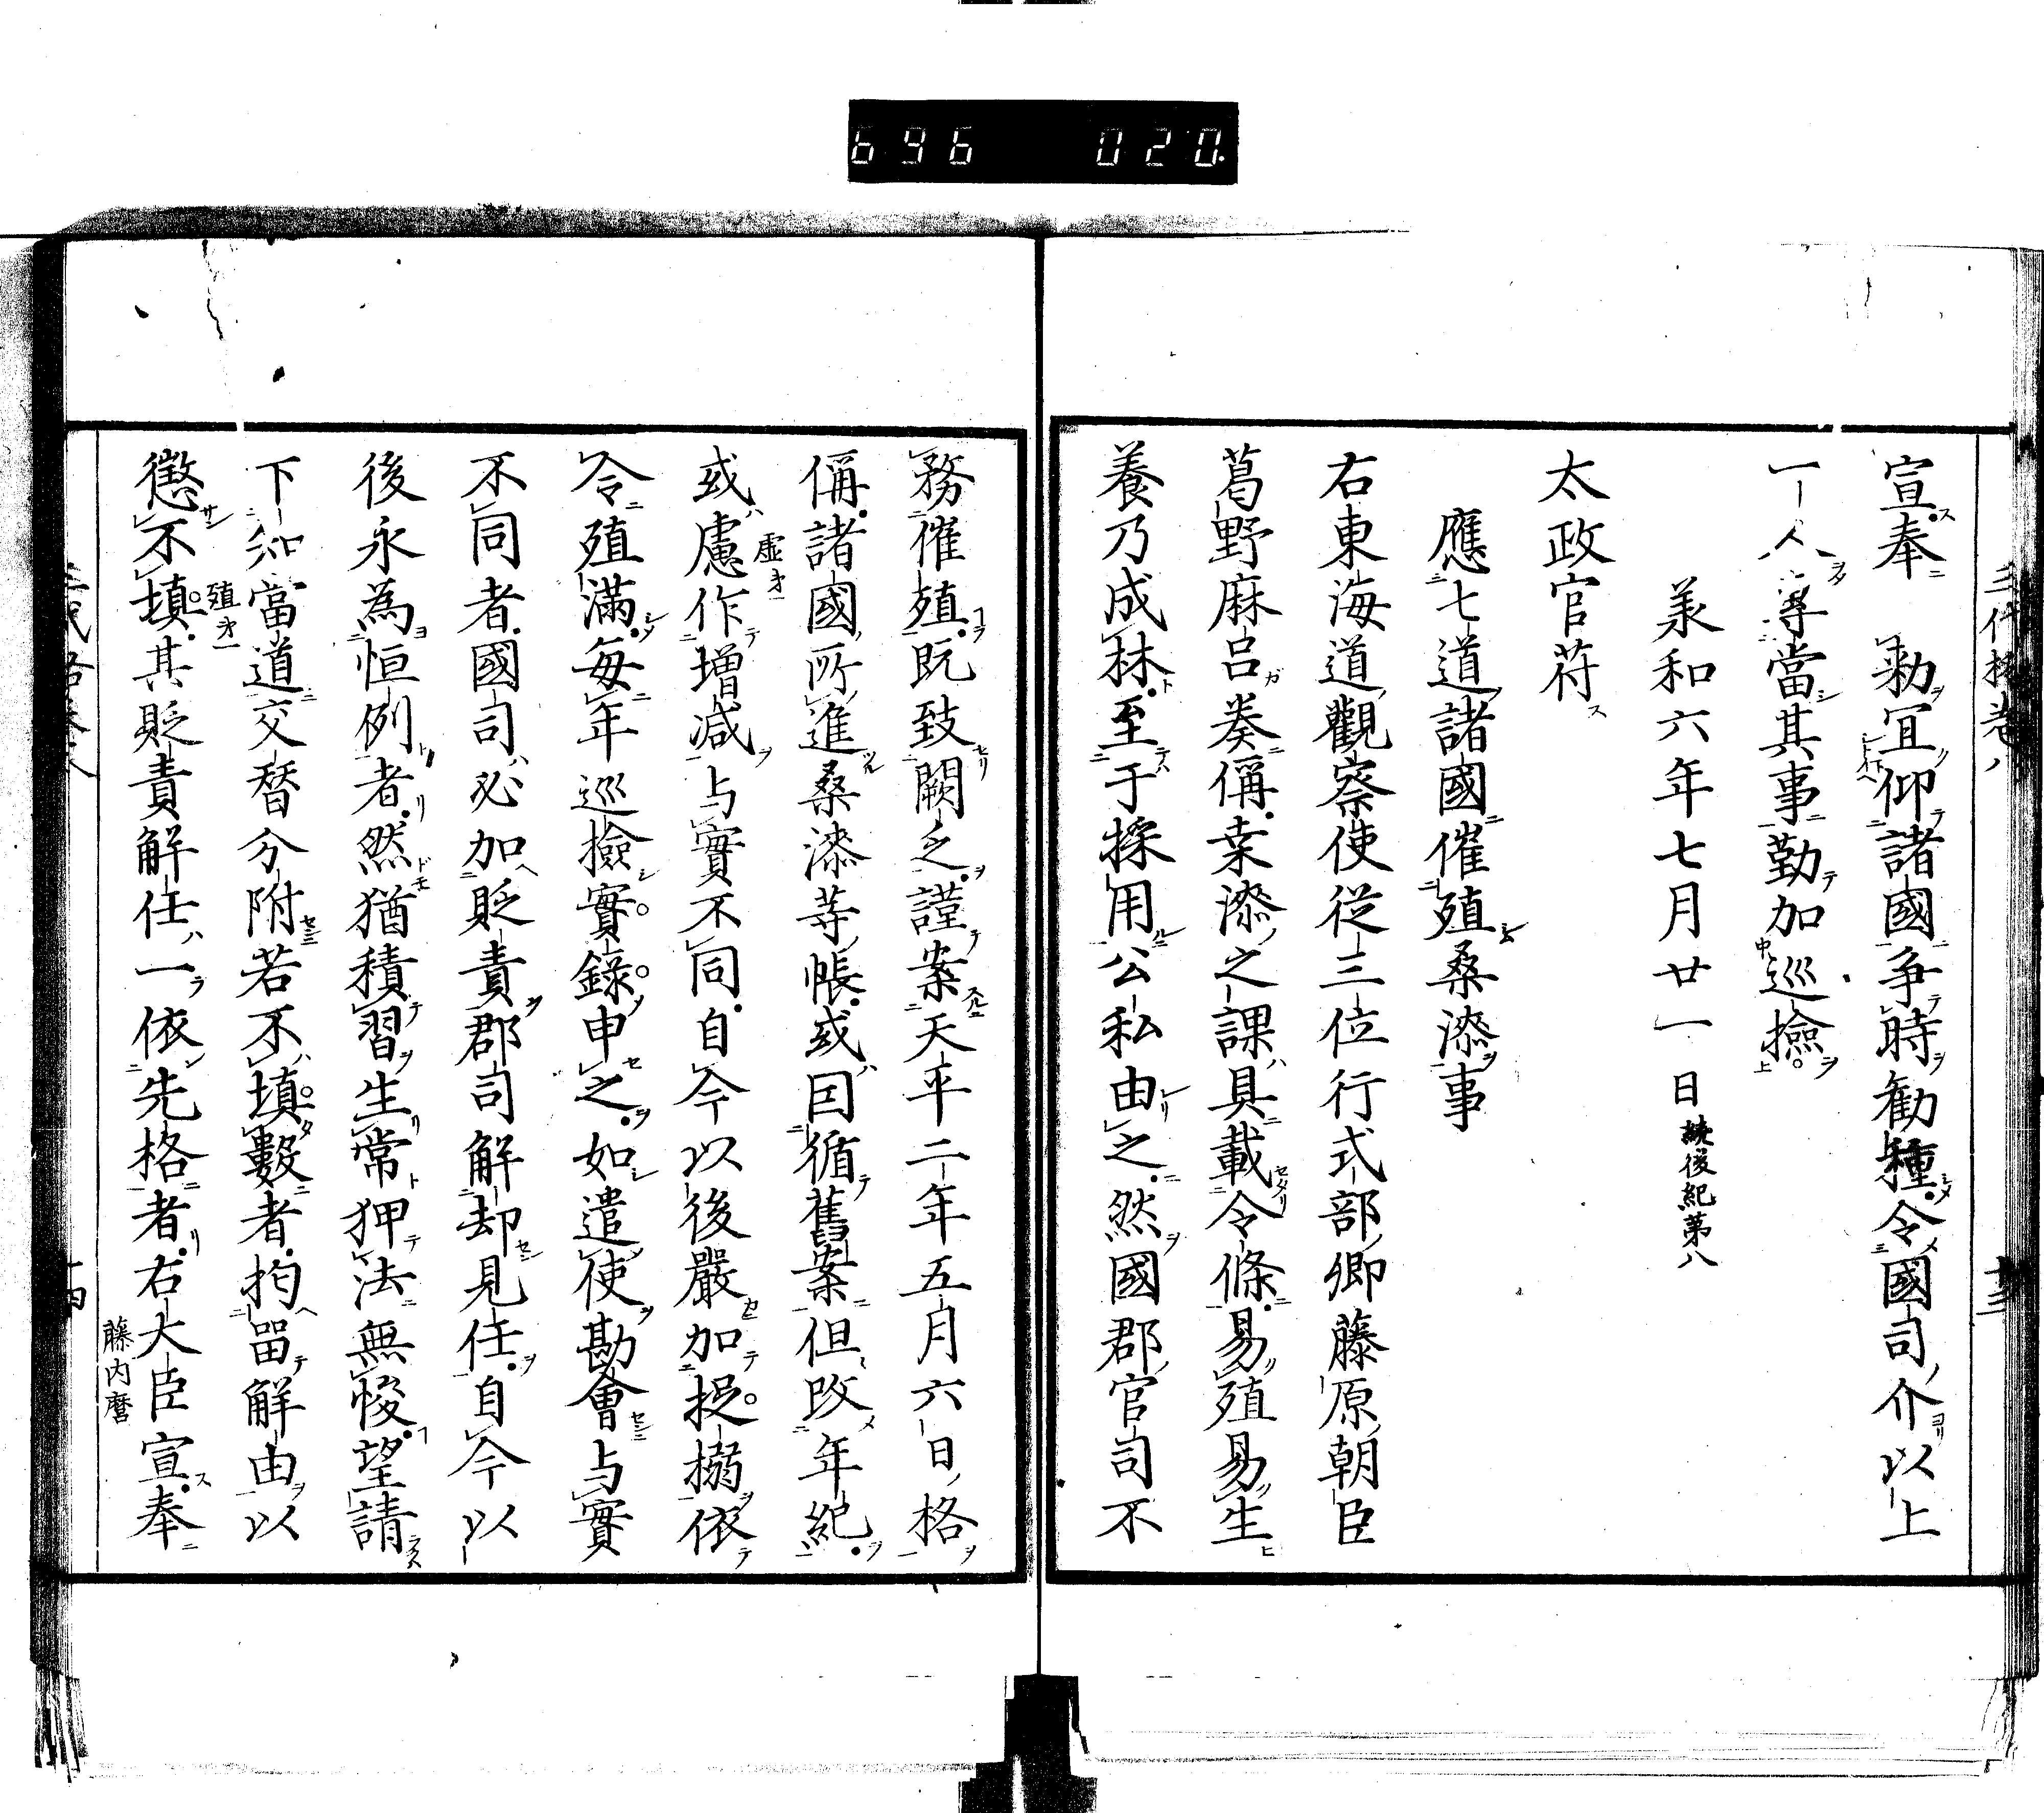 696 020.
三代格卷八
宣奉 勅冝仰諸國爭時勸種令國司介以上
一人專當其事勤加巡撿
羕和六年七月廿一日續後紀第八
太政官苻
應七道諸國催殖桑漆事
右東海道觀察使從三位行式部卿藤原朝臣
葛野麻呂奏偁桒漆之課具載令條易殖易生
養乃成林至于採用公私由之然國郡官司不
務催殖既致闕乏謹案天平二年五月六日格
偁諸國所進桑漆等帳或因循舊案但改年紀
或慮作增减与實不同自今以後嚴加捉搦依
令殖滿每年巡撿實錄申之如遣使勘會与實
不同者國司必加貶責郡司解却見任自今以
後永為恒例者然猶積習生常狎法無悛望請
下知當道交替分附若不填數者拘留解由以
懲不填其貶責解任一依先格者右大臣宣奉
虚
殖
藤内麿